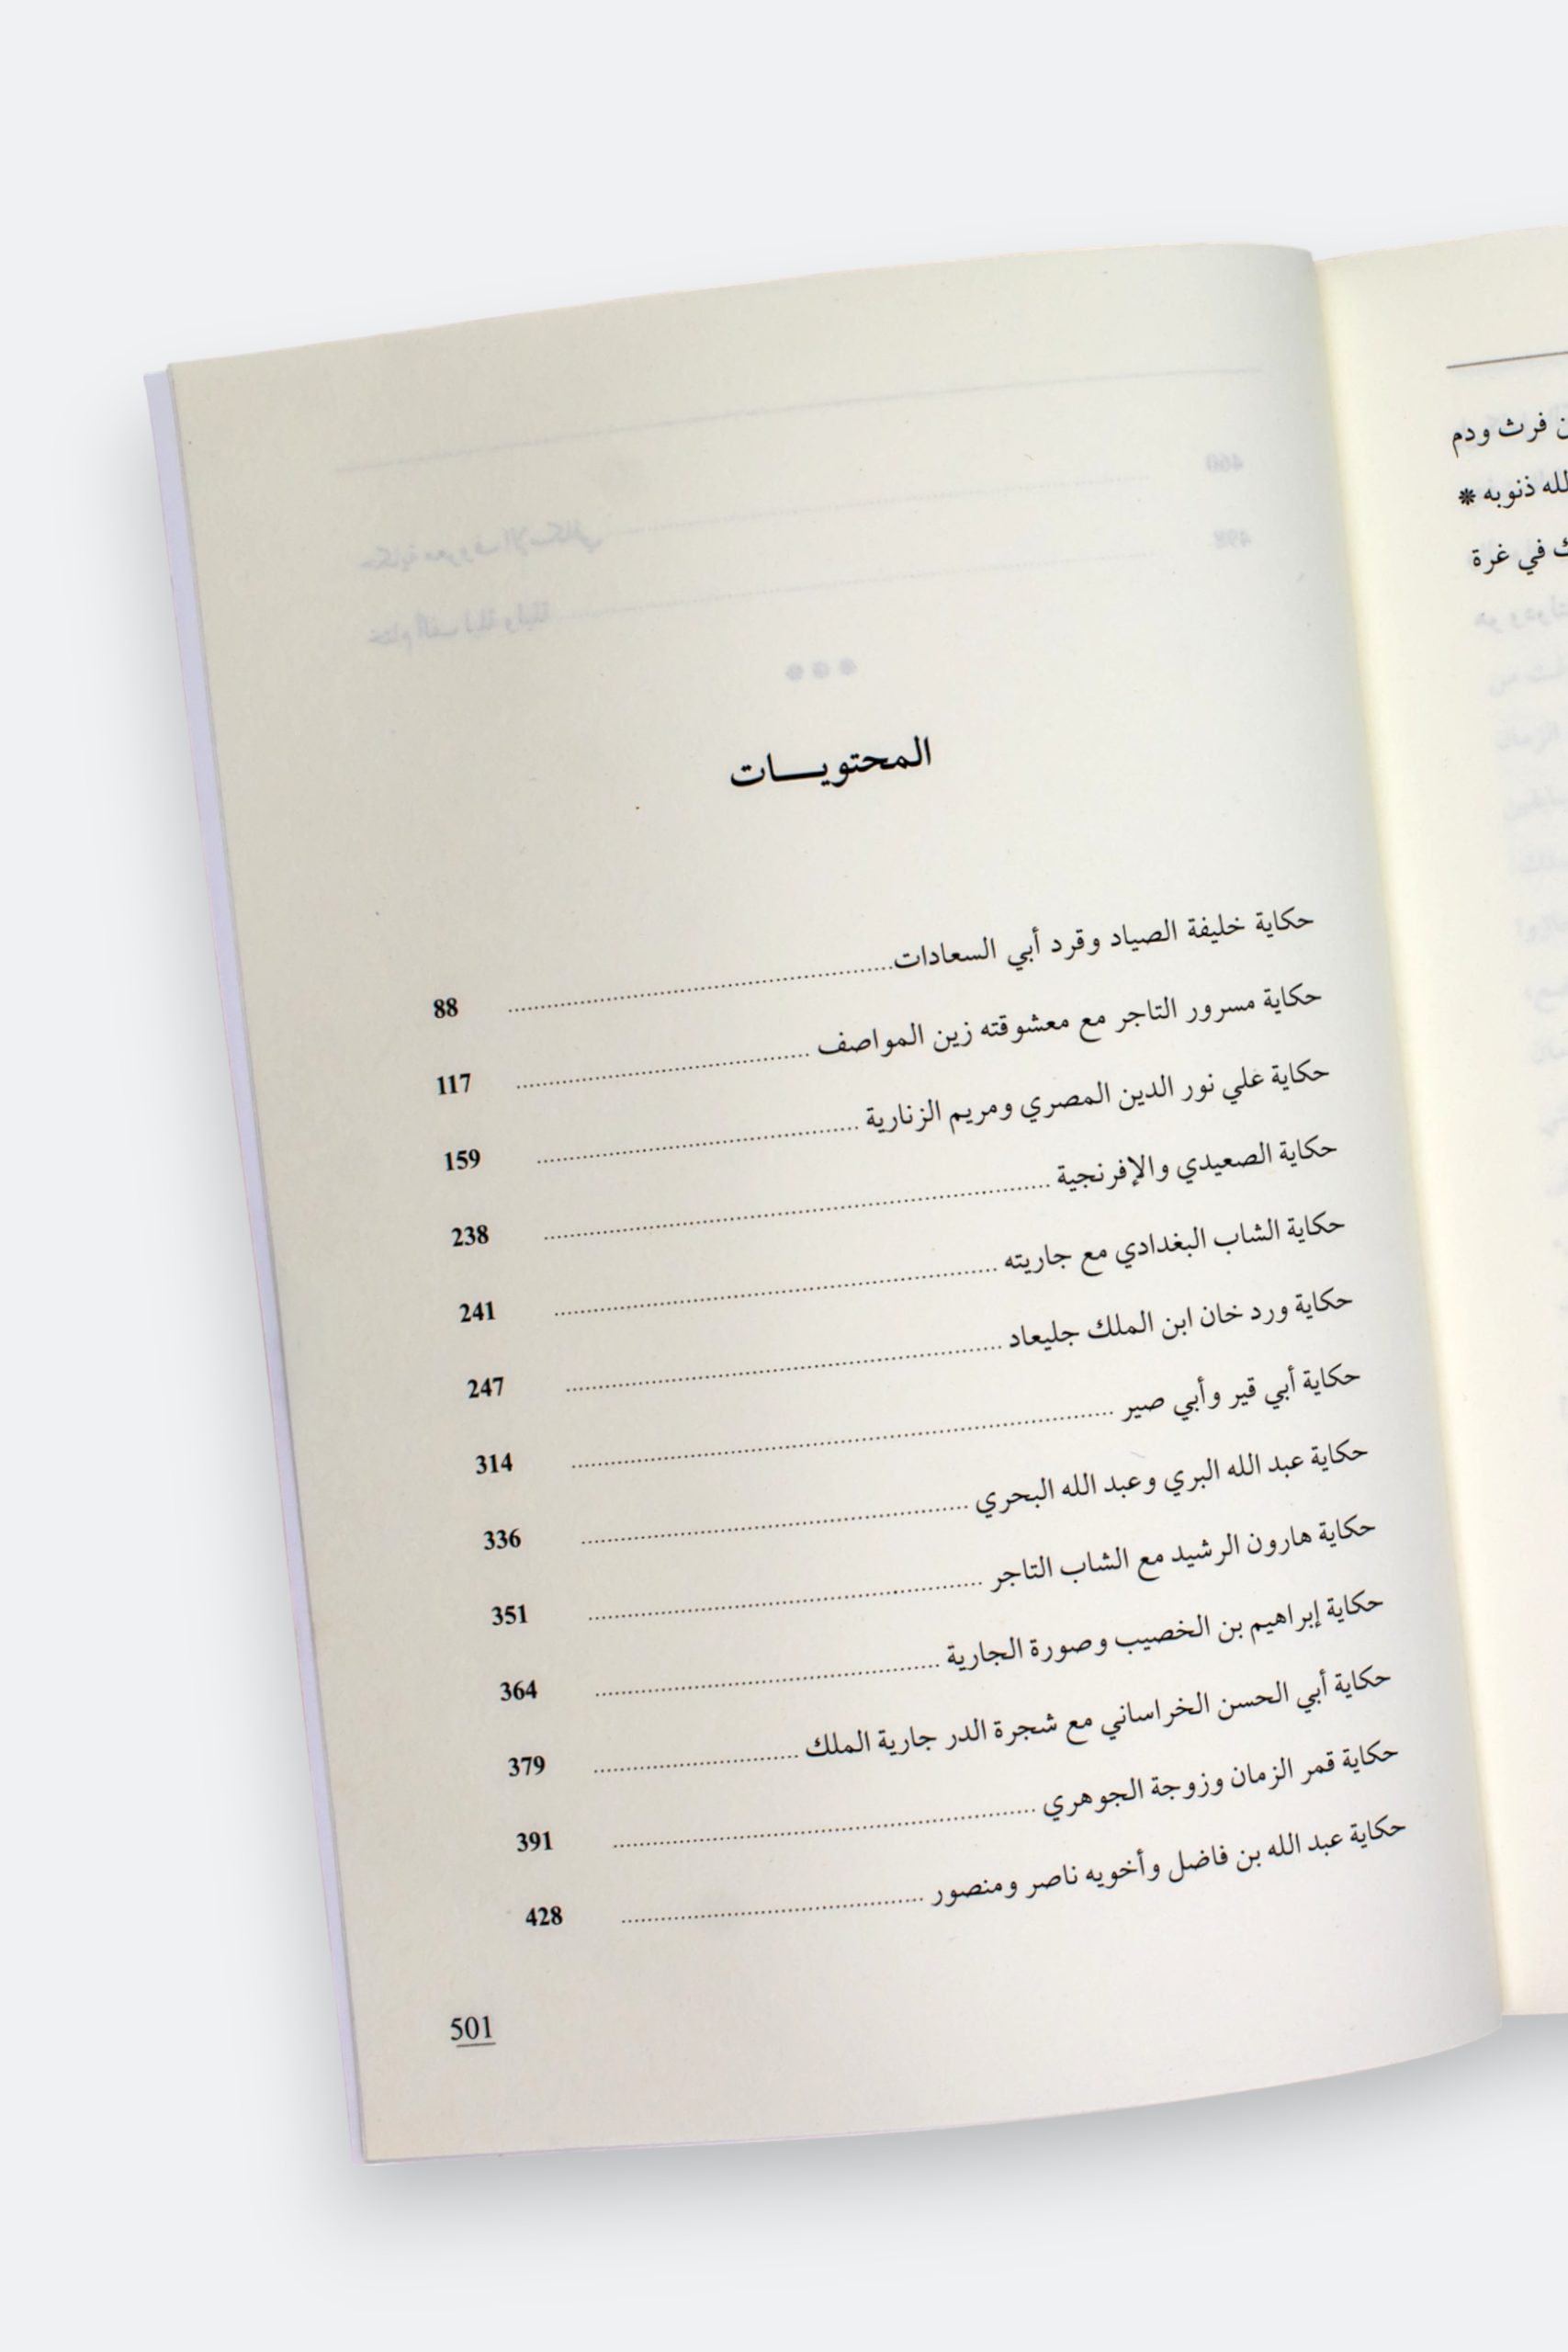 المحتويات
حكاية خليفة الصياد وقرد أبي السعادات 88
حكاية مسرور التاجر مع معشوقته زين المواصف 117
حكاية علي نور الدين المصري ومريم الزنارية 159
حكاية الصعيدي والإفرنجية 238
حكاية الشاب البغدادي مع جاريته 241
حكاية ورد خان ابن الملك جليعاد 247
حكاية أبي قير وأبي صير 314
حكاية عبد الله البري وعبد الله البحري 336
حكاية هارون الرشيد مع الشاب التاجر 351
حكاية إبراهيم بن الخصيب وصورة الجارية 364
حكاية أبي الحسن الخراساني مع شجرة الدر جارية الملك 379
حكاية قمر الزمان وزوجة الجوهري 391
حكاية عبد الله بن فاضل وأخويه ناصر ومنصور 428
501
فرث ودم
ذنوبه *
في غرة